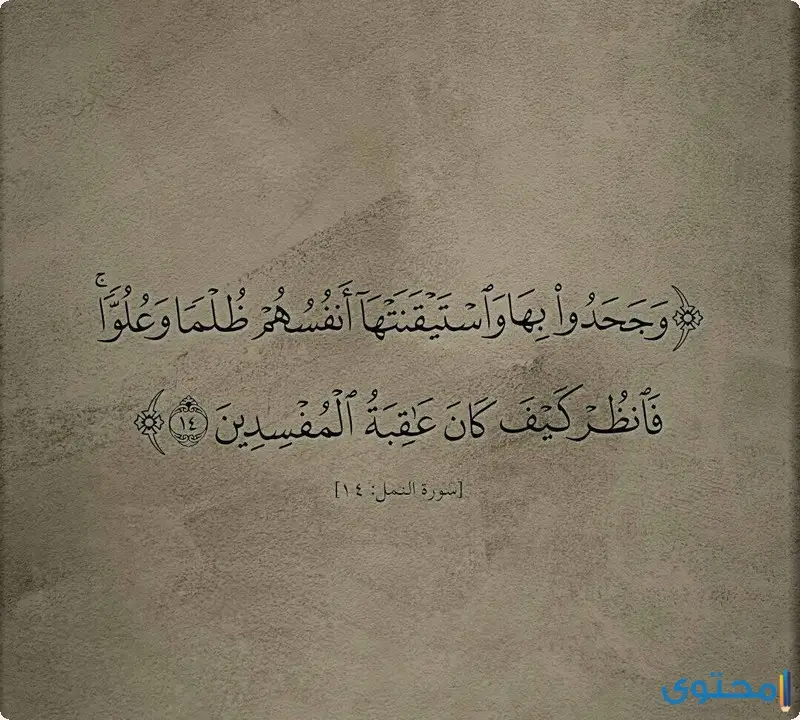 ﴿وَجَحَدُوا۟ بِهَا وَٱسْتَيْقَنَتْهَآ أَنفُسُهُمْ ظُلْمًا وَعُلُوًّا ۚ
فَٱنظُرْ كَيْفَ كَانَ عَـٰقِبَةُ ٱلْمُفْسِدِينَ ١٤﴾
[سورة النمل: ١٤]
محتوى